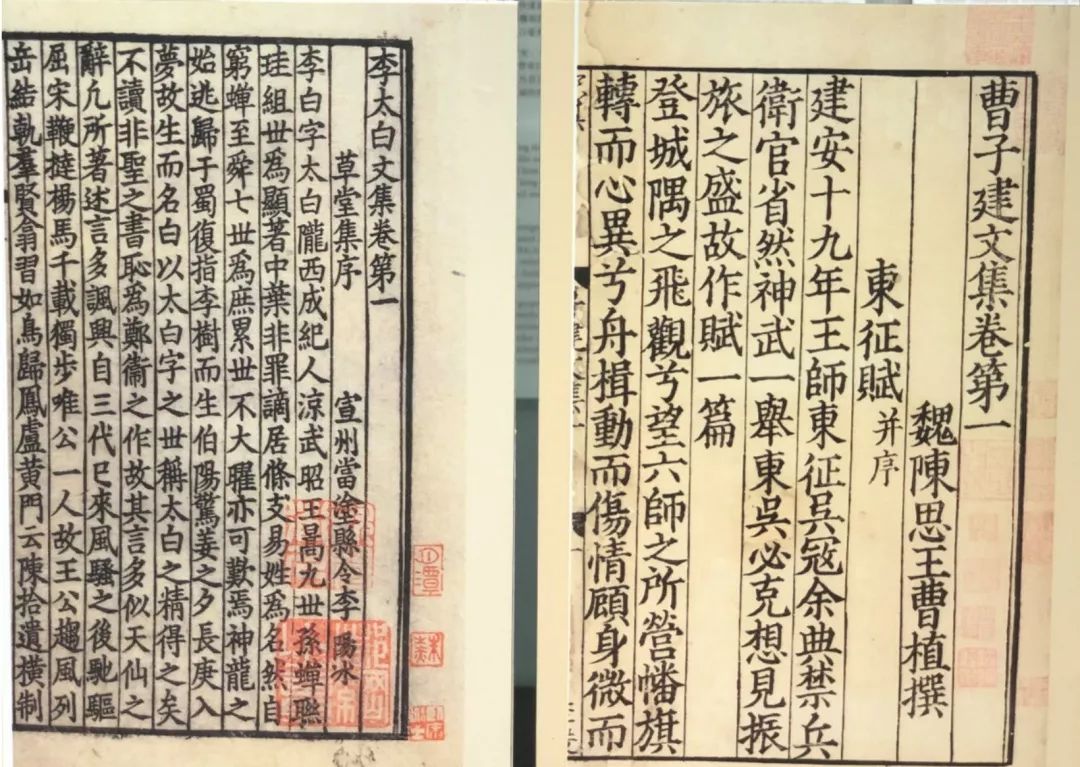 曹子建文集卷第一
魏陳思王曹植撰
東征賦并序
建安十九年王師東征吳寇余典禁兵
衛官省然神武一舉東吳必克想見振
旅之盛故作賦一篇
登城隅之飛觀兮望六師之所營幡旗
轉而心異兮舟楫動而傷情顧身微而
李太白文集卷第一
草堂集序 宣州當塗縣令李陽冰
李白字太白隴西成紀人涼武昭王暠九世孫蟬聯
珪組世爲顯著中葉非罪謫居條支易姓爲名然自
窮蟬至舜七世爲庶累世不大曜亦可歎焉神龍之
始逃歸于蜀復指李樹而生伯陽驚姜之夕長庚入
夢故生而名白以太白字之世稱太白之精得之矣
不讀非聖之書恥爲鄭衛之作故其言多似天仙之
辭凡所著述言多諷興自三代已來風騷之後馳驅
屈宋鞭撻楊馬千載獨步唯公一人故王公趨風列
岳結軌羣賢翕習如鳥歸鳳盧黃門云陳拾遺橫制